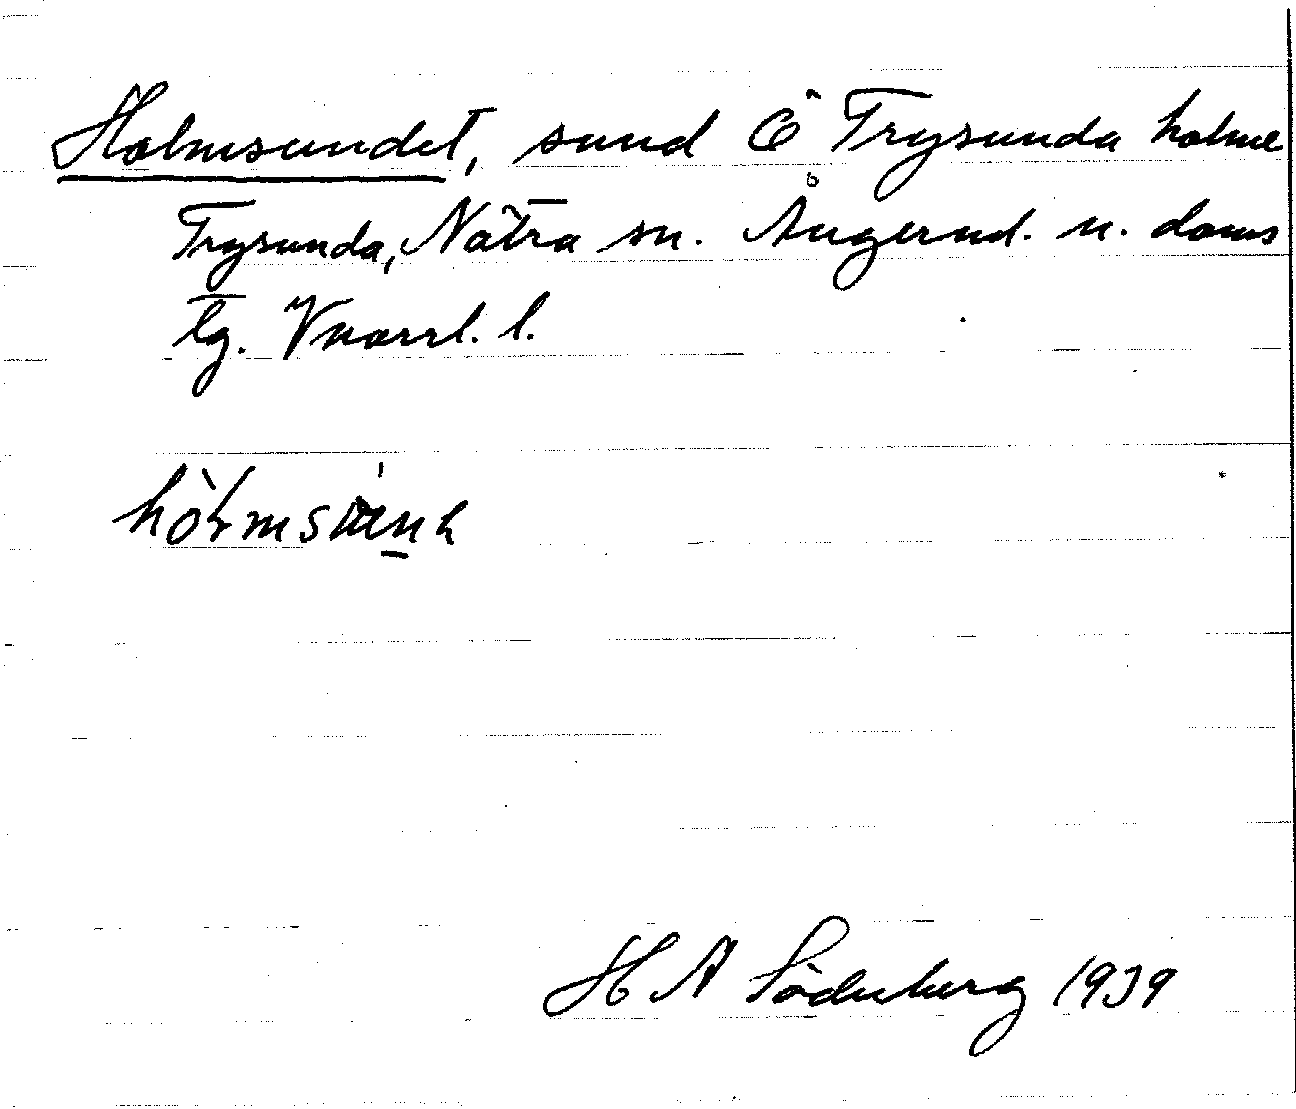 Holmsundet, sund Ö Trysunda holme
Trysunda, Nätra sn. Ångermd. n. doms
tg. Vnorrl. l.
H A Söderberg 1939